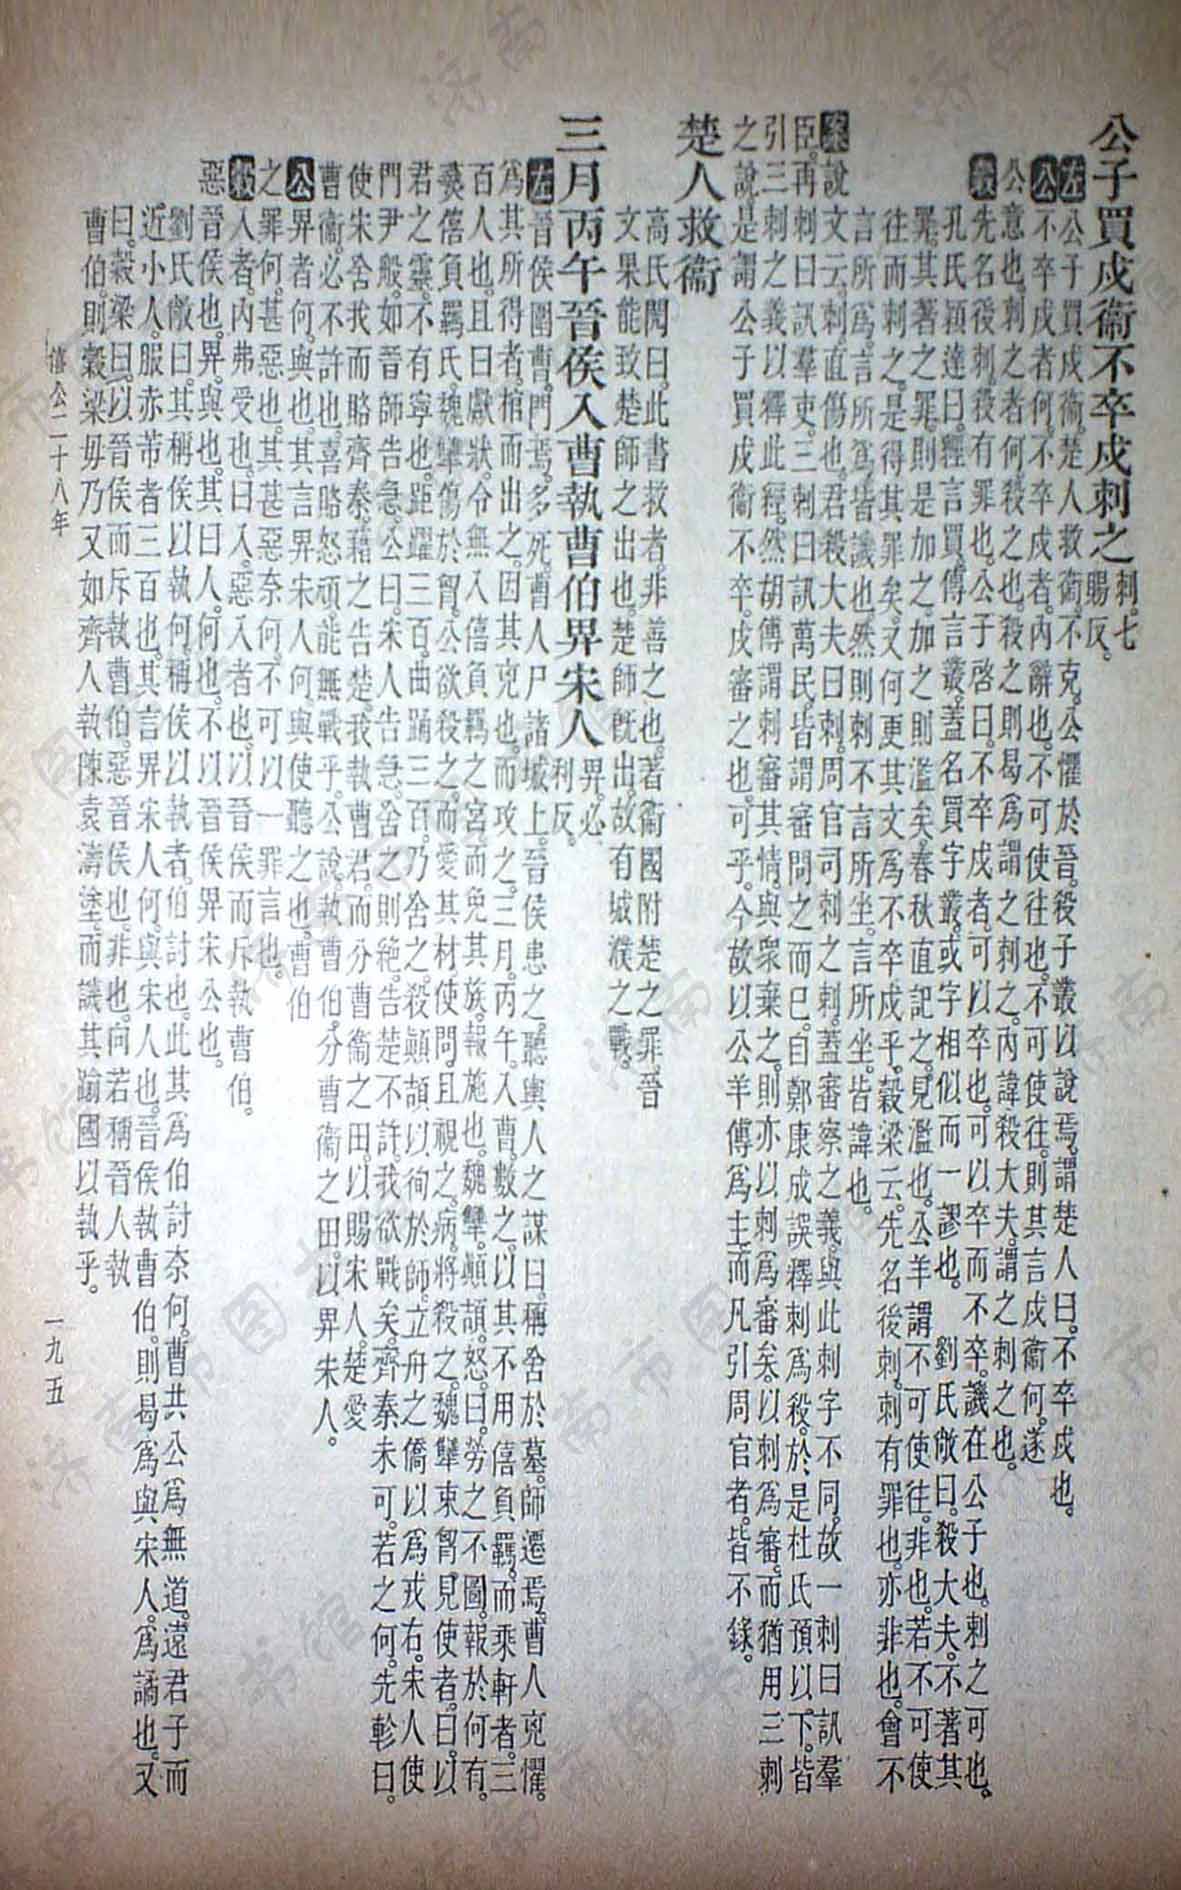 公子買戍衞不卒戍刺之刺。七賜反。
左公子買戍衞。楚人救衞。不克。公懼於晉。殺子叢以說焉。謂楚人曰。不卒戍也。
公不卒戍者何。不卒戍者。內辭也。不可使往也。不可使往。則其言戍衞何。遂
公意也。刺之者何。殺之也。殺之則曷爲謂之刺之。內諱殺大夫。謂之刺之也。
穀先名後刺。殺有罪也。公子啓曰。不卒戍者。可以卒也。可以卒而不卒。譏在公子也。刺之可也。
孔氏穎達曰。經言買。傳言叢。蓋名買字叢。或字相似而一謬也。　劉氏敞曰。殺大夫。不著其
罪。其著之罪。則是加之。加之則濫矣。春秋直記之。見濫也。公羊謂不可使往。非也。若不可使
往而刺之。是得其罪矣。又何更其文爲不卒戍乎。穀梁云。先名後刺。刺有罪也。亦非也。會不
言所爲。言所爲。皆譏也。然則刺不言所坐。言所坐。皆諱也。
案說文云。刺。直傷也。君殺大夫曰刺。周官司刺之刺。蓋審察之義。與此刺字不同。故一刺曰訊羣
臣。再刺曰訊羣吏。三刺曰訊萬民。皆謂審問之而已。自鄭康成誤釋刺爲殺。於是杜氏預以下。皆
引三刺之義以釋此經。然胡傳謂刺審其情。與衆棄之。則亦以刺爲審矣。以刺爲審。而猶用三刺
之說。是謂公子買戍衞不卒。戍審之也。可乎。今故以公羊傳爲主。而凡引周官者。皆不錄。
楚人救衞
高氏閌曰。此書救者。非善之也。著衞國附楚之罪。晉
文果能致楚師之出也。楚師旣出。故有城濮之戰。
三月丙午晉侯入曹執曹伯畀宋人畀。必利反。
左晉侯圍曹。門焉。多死。曹人尸諸城上。晉侯患之。聽輿人之謀曰。稱舍於墓。師遷焉。曹人兇懼。
爲其所得者。棺而出之。因其兇也。而攻之。三月。丙午。入曹。數之。以其不用僖負羈。而乘軒者。三
百人也。且曰獻狀。令無入僖負羈之宮而免其族。報施也。魏犨。顚頡。怒。曰。勞之不圖。報於何有。
爇僖負羈氏。魏犨傷於胷。公欲殺之。而愛其材。使問。且視之。病。將殺之。魏犨束胷。見使者。曰。以
君之靈。不有寧也。距躍三百。曲踊三百。乃舍之。殺顚頡以徇於師。立舟之僑以爲戎右。宋人使
門尹般。如晉師告急。公曰。宋人告急。舍之則絶。告楚不許。我欲戰矣。齊秦未可。若之何。先軫曰。
使宋舍我而賂齊秦。藉之告楚。我執曹君。而分曹衞之田。以賜宋人。楚愛
曹衞。必不許也。喜賂怒頑。能無戰乎。公說。執曹伯。分曹衞之田。以畀宋人。
公畀者何。與也。其言畀宋人何。與使聽之也。曹伯
之罪何。甚惡也。其甚惡奈何。不可以一罪言也。
穀入者。內弗受也。曰入。惡入者也。以晉侯而斥執曹伯。
惡晉侯也。畀。與也。其曰人。何也。不以晉侯畀宋公也。
劉氏敞曰。其稱侯以執何。稱侯以執者。伯討也。此其爲伯討奈何。曹共公爲無道。遠君子而
近小人。服赤芾者三百也。其言畀宋人何。與宋人也。晉侯執曹伯。則曷爲與宋人。爲譎也。又
曰。穀梁曰。以晉侯而斥執曹伯。惡晉侯也。非也。向若稱晉人執
曹伯。則穀梁毋乃又如齊人執陳袁濤塗。而譏其踰國以執乎。
僖公二十八年　一九五
济南市图书馆